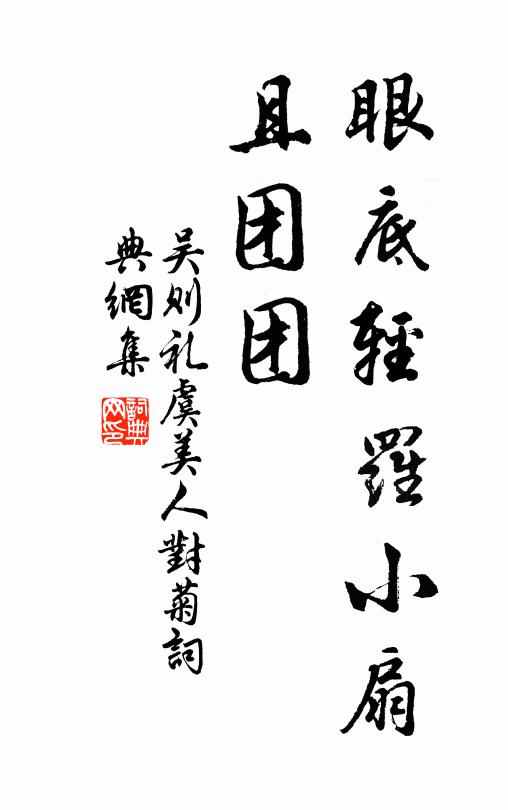 眼底輕羅小扇
且团团
吴则礼虞美人對菊詞
典網集
詞典网印